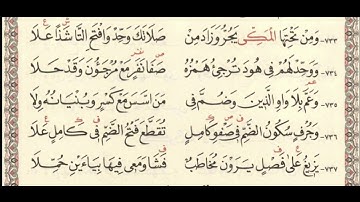 ٧٣٣- وَمِنْ تَحْتِهَا الْمَكِّي يَجُرُّ وَزَادَ مِنْ صَلَاتَكَ وَحِّدْ وَافْتَحِ التَّا شَذًا عَلَا
٧٣٤- وَوَحِّدْ لَهُمْ فِي هُودَ تُرْجِئُ هَمْزُهُ صَفَا نَفَرٍ مَعْ مُرْجَئُونَ وَقَدْ حَلَا
٧٣٥- وَعَمَّ بِلَا وَاوِ الَّذِينَ وَضُمَّ فِي مَنَ اسَّسَ مَعْ كَسْرٍ وَبُنْيَانُهُ وِلَا
٧٣٦- وَجُرْفٍ سُكُونُ الضَّمِّ فِي صَفْوِ كَامِلٍ تُقَطَّعَ فَتْحُ الضَّمِّ فِي كَامِلٍ عَلَا
٧٣٧- يَزِيغُ عَلَى فَصْلٍ يَرَوْنَ مُخَاطَبٌ فَشَا وَمَعِي فِيهَا بِيَاءَيْنِ حُمِّلَا